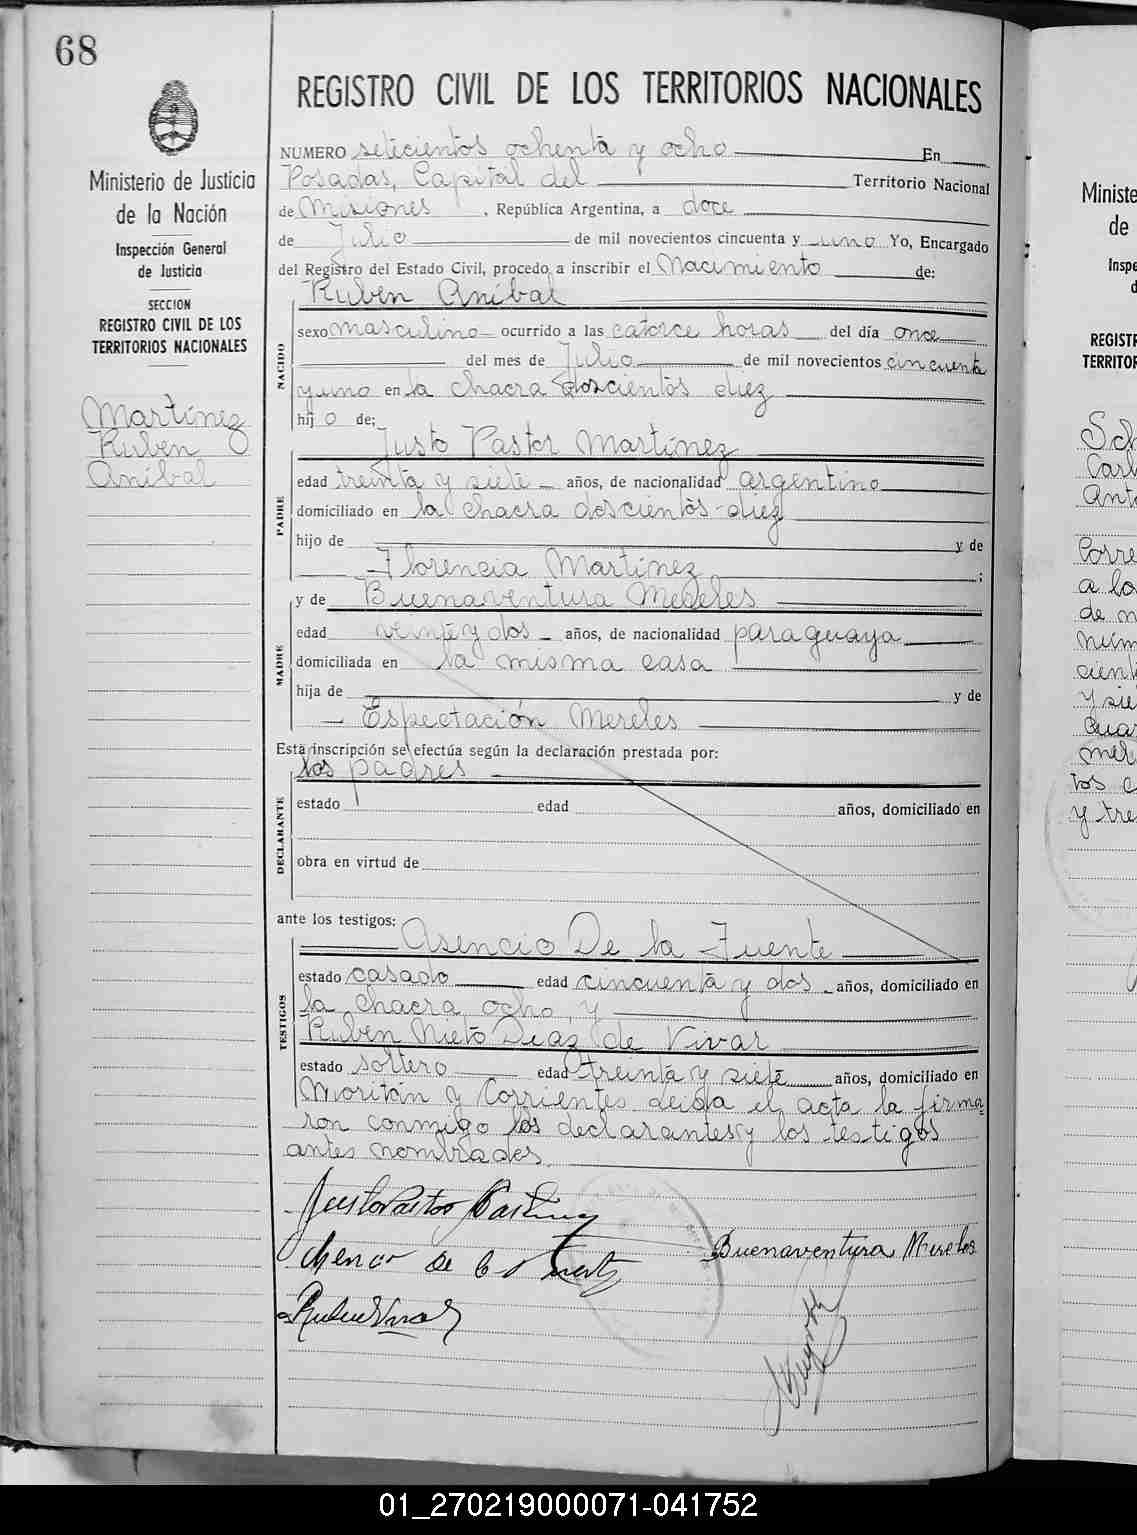 68
REGISTRO CIVIL DE LOS TERRITORIOS NACIONALES
Ministerio de Justicia
de la Nación
Inspección General
de Justicia
SECCION
REGISTRO CIVIL DE LOS
TERRITORIOS NACIONALES
Martínez
Ruben
Aníbal
NUMERO setecientos ochenta y ocho En
Posadas, Capital del Territorio Nacional
de Misiones, República Argentina, a doce
de Julio de mil novecientos cincuenta y uno Yo, Encargado
del Registro del Estado Civil, procedo a inscribir el Nacimiento de:
Ruben Aníbal
NACIDO
sexo masculino ocurrido a las catorce horas del día once
del mes de Julio de mil novecientos cincuenta
y uno en la chacra doscientos diez
hijo de;
Justo Pastor Martínez
PADRE
edad treinta y siete años, de nacionalidad argentino
domiciliado en la chacra doscientos diez
hijo de y de
Florencia Martínez ;
y de Buenaventura Mereles
MADRE
edad veinte y dos años, de nacionalidad paraguaya
domiciliada en la misma casa
hija de y de
Espectación Mereles
Esta inscripción se efectúa según la declaración prestada por:
los padres
DECLARANTE
estado edad años, domiciliado en
obra en virtud de
ante los testigos:
Asencio De la Fuente
TESTIGOS
estado casado edad cincuenta y dos años, domiciliado en
la chacra ocho, y
Ruben Nieto Diaz de Vivar
estado soltero edad treinta y siete años, domiciliado en
Moritán y Corrientes leida el acta la firma-
ron conmigo los declarantes y los testigos
antes nombrados.
Justo Pastor Martinez
Buenaventura Mereles
de la Fuente
Ministe
de
Inspe
d
REGISTR
TERRITOR
Sch
Carl
Anto
Corre
a lo
de m
núm
cient
y sie
cua
mil
tos c
y tre
01_270219000071-041752